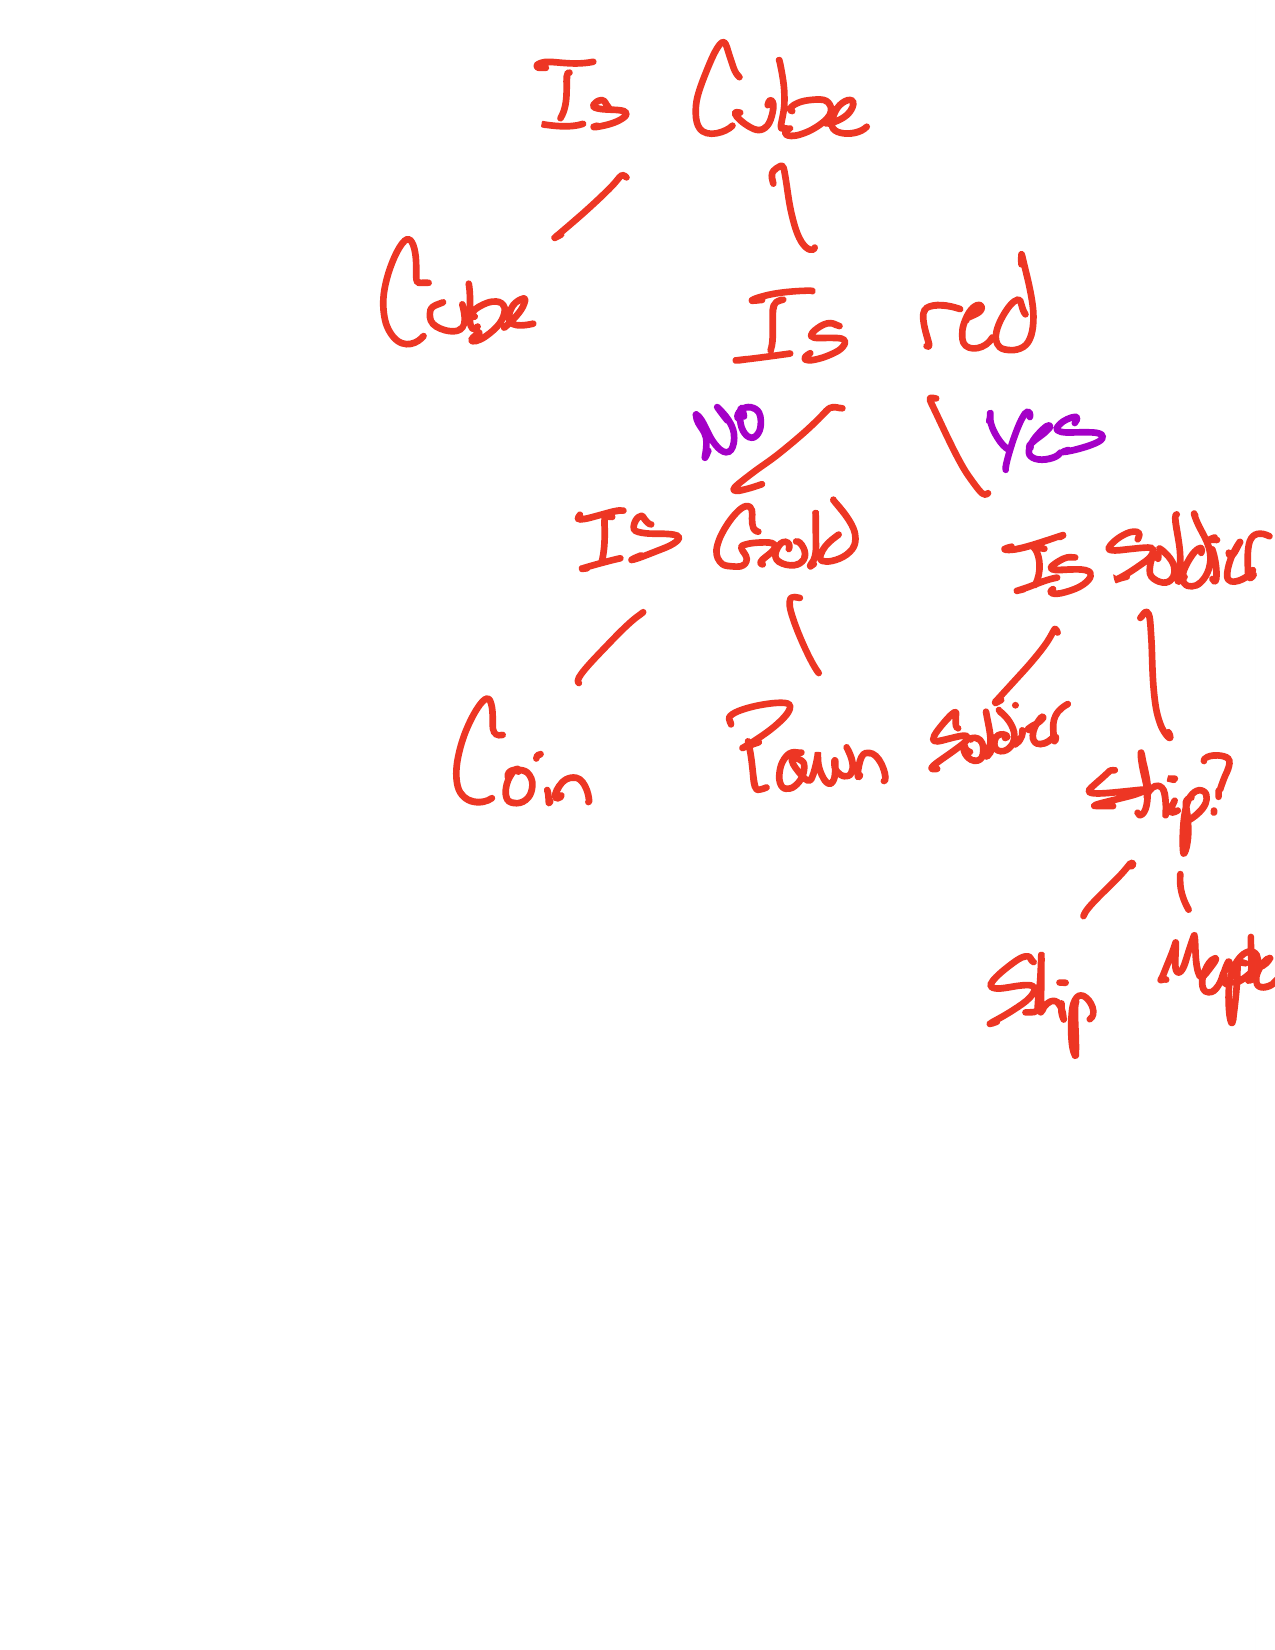 Is Cube
Cube
Is red
No
Yes
Is Gold
Is Soldier
Coin
Pawn
Soldier
Ship?
Ship
Meeple